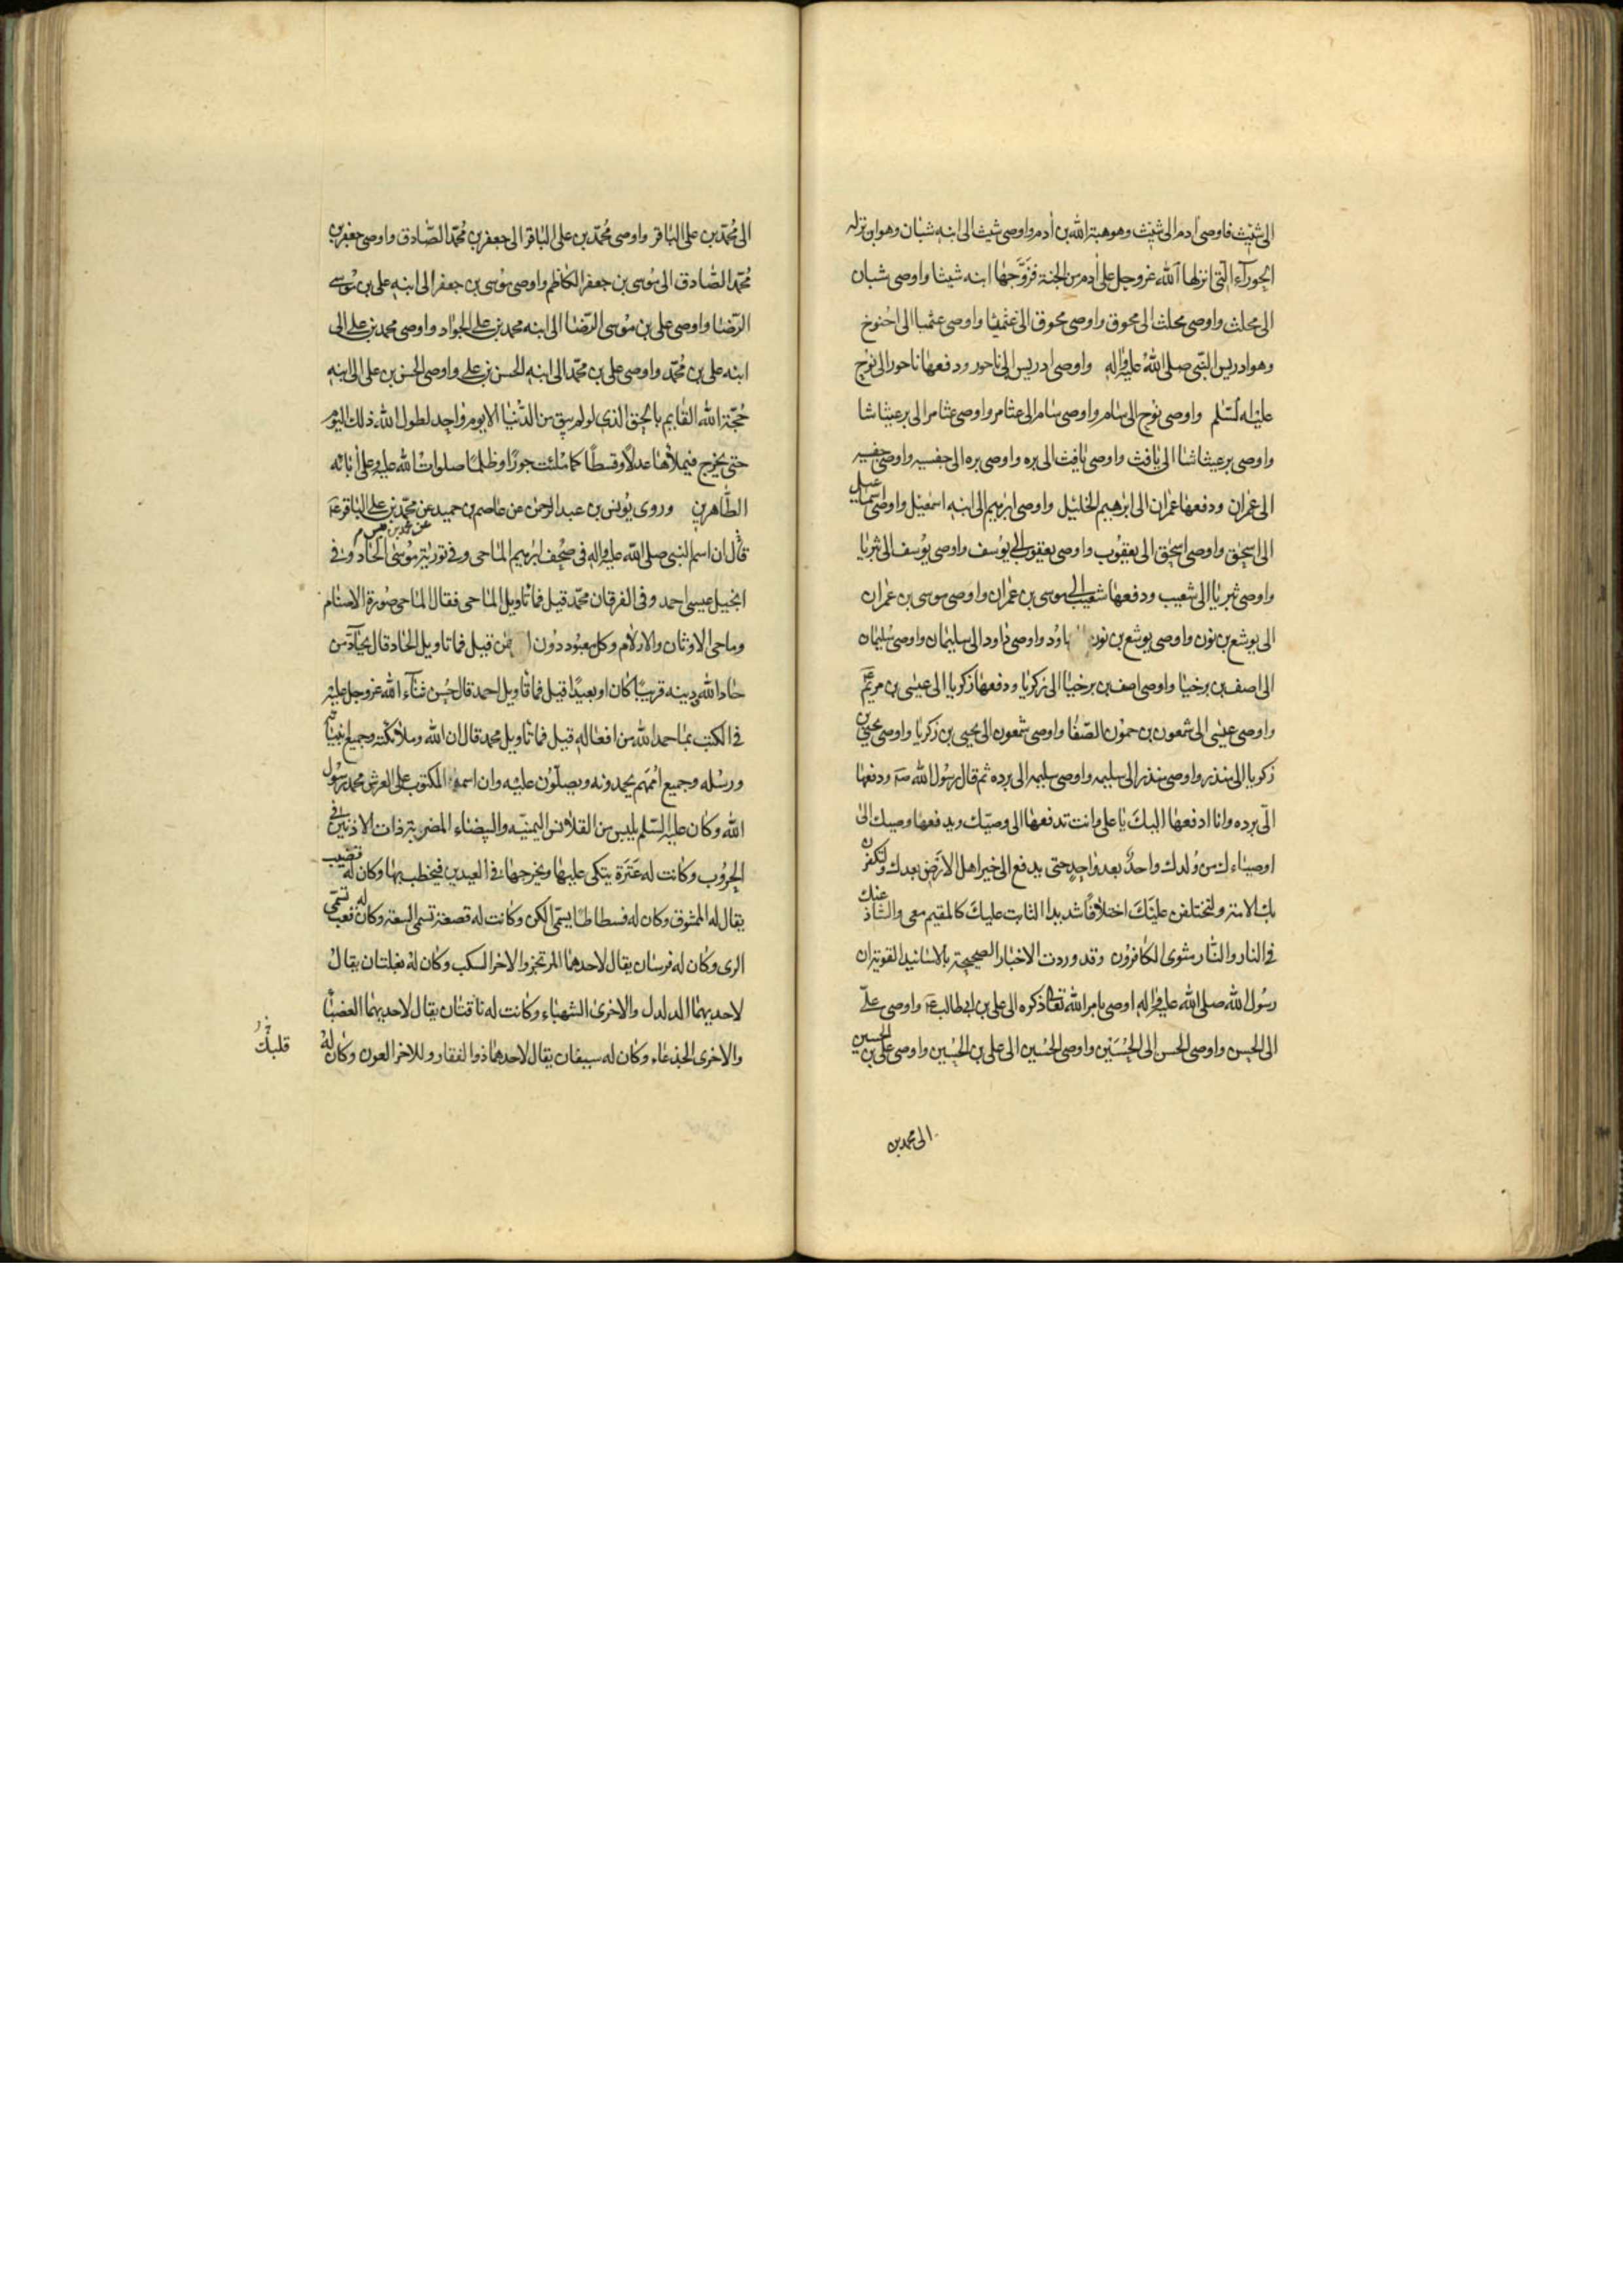 الى شيث فاوصى آدم الى شيث وهو هبة الله بن آدم واوصى شيث الى ابنه شبان وهو ابن نزله
الحورآء التي انزلها الله عزوجل على آدم من الجنة فزوّجها ابنه شيثا واوصى شبان
الى محلث واوصى محلث الى محوق واوصى محوق الى عثميا واوصى عثميا الى اخنوخ
وهو ادريس النبي صلى الله عليه واله واوصى ادريس الى ناحور ودفعها ناحور الى نوح
عليه السلم واوصى نوح الى سام واوصى سام الى عثامر واوصى عثامر الى برعيثاشا
واوصى برعيثاشا الى يافث واوصى يافث الى بره واوصى بره الى جفسيه واوصى جفسيه
الى عمران ودفعها عمران الى ابرهيم الخليل واوصى ابرهيم الى ابنه اسمعيل واوصى اسماعيل
الى اسحق واوصى اسحق الى يعقوب واوصى يعقوب الى يوسف واوصى يوسف الى بثريا
واوصى بثريا الى شعيب ودفعها شعيب الى موسى بن عمران واوصى موسى بن عمران
الى يوشع بن نون واوصى يوشع بن نون داود واوصى داود الى سليمان واوصى سليمان
الى اصف بن برخيا واوصى اصف بن برخيا الى زكريا ودفعها زكريا الى عيسى بن مريم ع
واوصى عيسى الى شمعون بن حمون الصفا واوصى شمعون الى يحيى بن زكريا واوصى يحيى بن
زكريا الى منذر واوصى منذر الى سليمه واوصى سليمه الى برده ثم قال رسول الله ص ودفعها
الىّ برده وانا ادفعها اليك يا علي وانت تدفعها الى وصيّك ويدفعها وصيك الى
اوصياءك من ولدك واحد بعد واحد حتى يدفع الى خير اهل الارض بعدك ولتكفرن
بك الامة ولتختلفن عليك اختلافا شديدا الثابت عليك كالمقيم معي والشاذ عنك
في النار والنار مثوى الكافرون وقد وردت الاخبار الصحيحة بالاسانيد القوية ان
رسول الله صلى الله عليه واله اوصى بامر الله تعالى ذكره الى علي بن ابي طالب ع واوصى علي
الى الحسن واوصى الحسن الى الحسين واوصى الحسين الى علي بن الحسين واوصى علي بن الحسين
الى محمد بن
الى محمد بن علي الباقر واوصى محمد بن علي الباقر الى جعفر بن محمد الصادق واوصى جعفر بن
محمد الصادق الى موسى بن جعفر الكاظم واوصى موسى بن جعفر الى ابنه علي بن موسى
الرضا واوصى علي بن موسى الرضا الى ابنه محمد بن علي الجواد واوصى محمد بن علي الى
ابنه علي بن محمد واوصى علي بن محمد الى ابنه الحسن بن علي واوصى الحسن بن علي الى ابنه
حجّة الله القايم بالحق الذي لو لم يبق من الدنيا الا يوم واحد لطول الله ذلك اليوم
حتى يخرج فيملأها عدلا وقسطا كما ملئت جورا وظلما صلوات الله عليه وعلى آبائه
الطاهرين وروى يونس بن عبد الرحمن عن عاصم بن حميد عن محمد بن علي الباقر ع
عن محمد بن قيس م
قال ان اسم النبي صلى الله عليه واله في صحف ابرهيم الماحي وفي تورية موسى الحاد وفي
انجيل عيسى احمد وفي الفرقان محمد قيل فما تاويل الماحي فقال الماحي صورة الاصنام
وماحي الاوثان والازلام وكل معبود دون الرحمن قيل فما تاويل الحاد قال يحادّ من
حاد الله ودينه قريبا كان او بعيدا قيل فما تاويل احمد قال حسن ثناء الله عزوجل عليه
في الكتب بما حمد الله من افعاله قيل فما تاويل محمد قال ان الله وملائكته وجميع انبيائه
ورسله وجميع اممهم يحمدونه ويصلّون عليه وان اسمه المكتوب على العرش محمد رسول
الله وكان عليه السلم يلبس من القلانس اليمنيه والبيضاء المضربة ذات الاذنين في
الحروب وكانت له عنزة يتكي عليها ويخرجها في العيدين فيخطب بها وكان له قضيب
يقال له الممشوق وكان له فسطاطا يسمّى الكن وكانت له قصعة تسمى السعة وكان له قعب تسمى
الري وكان له فرسان يقال لاحدهما المرتجز والاخر السكب وكان له بغلتان يقال
لاحديهما الدلدل والاخرى الشهباء وكانت له ناقتان يقال لاحديهما العضباء
والاخرى الجذعاء وكان له سيفان يقال لاحدهما ذوالفقار وللاخر العون وكان له